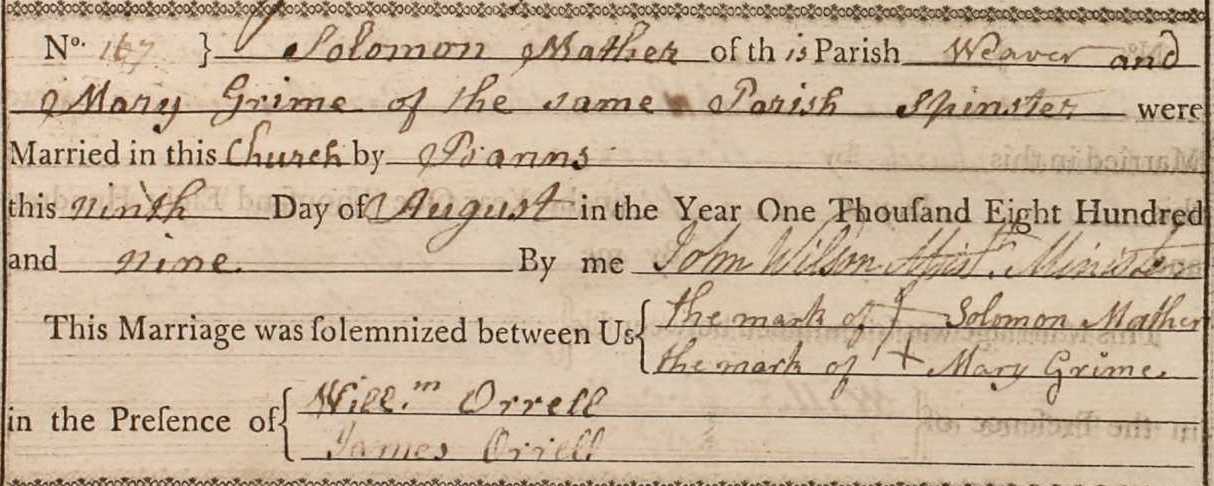 No. 167 } Solomon Mather of this Parish Weaver and
Mary Grime of the same Parish Spinster were
Married in this Church by Banns
this ninth Day of August in the Year One Thouſand Eight Hundred
and nine. By me John Wilson Aſsist. Minister
This Marriage was ſolemnized between Us { the mark of + Solomon Mather
the mark of + Mary Grime.
in the Preſence of { Will.m Orrell
James Orrell